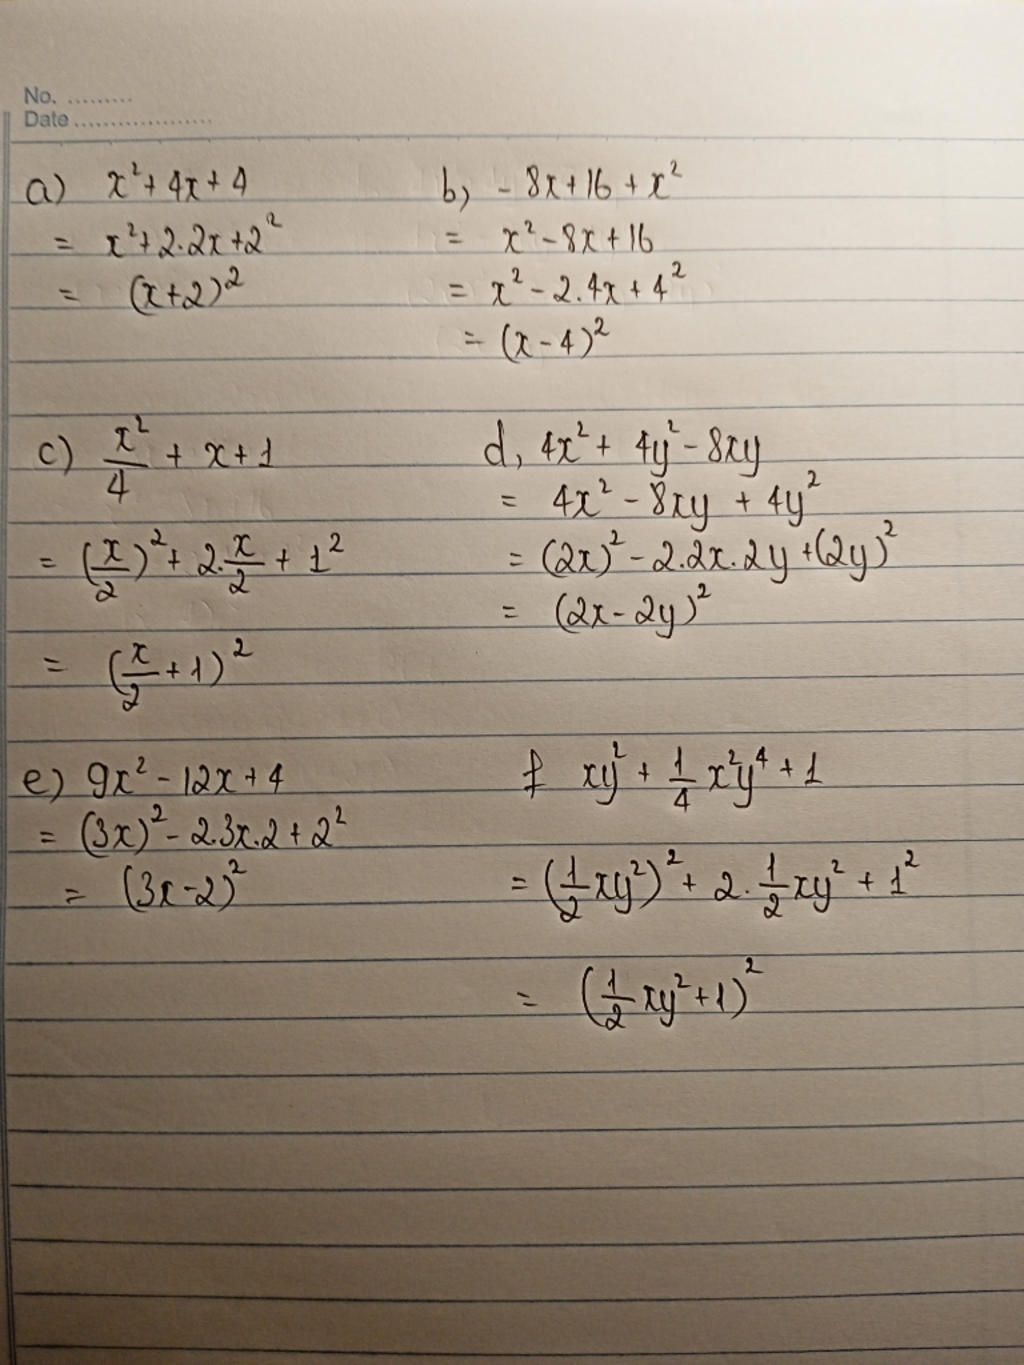 No. .........
Date ...................
a) x² + 4x + 4
= x² + 2.2x + 2²
= (x+2)²
b, - 8x + 16 + x²
= x² - 8x + 16
= x² - 2.4x + 4²
= (x - 4)²
c) x²/4 + x + 1
= (x/2)² + 2.x/2 + 1²
= (x/2 + 1)²
d, 4x² + 4y² - 8xy
= 4x² - 8xy + 4y²
= (2x)² - 2.2x.2y + (2y)²
= (2x - 2y)²
e) 9x² - 12x + 4
= (3x)² - 2.3x.2 + 2²
= (3x - 2)²
f xy² + 1/4 x²y⁴ + 1
= (1/2 xy²)² + 2. 1/2 xy² + 1²
= (1/2 xy² + 1)²